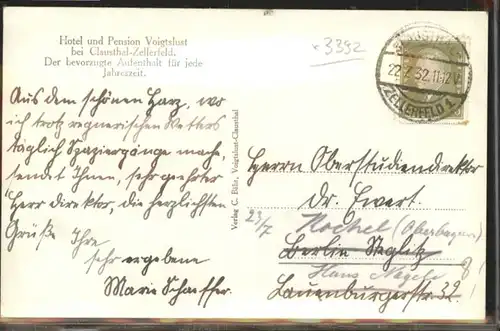 Hotel und Pension Voigtslust
bei Clausthal-Zellerfeld.
Der bevorzugte Aufenthalt für jede
Jahreszeit.
x3392
22.7.32.11-12V.
ZELLERFELD 1
Aus dem schönen Harz, wo
ich trotz regnerischen Wetters
täglich Spaziergänge mache,
sendet Ihnen, sehr geehrter
Herr Direktor, die herzlichsten
Grüße Ihre
sehr ergebene
Marie Schaeffer.
Verlag C. Bähr, Voigtslust-Clausthal
Herrn Oberstudiendirektor
Dr. Ewert.
23/7
Kochel (Oberbayern)
Berlin Steglitz
Haus Nagele
Lauenburgerstr. 32